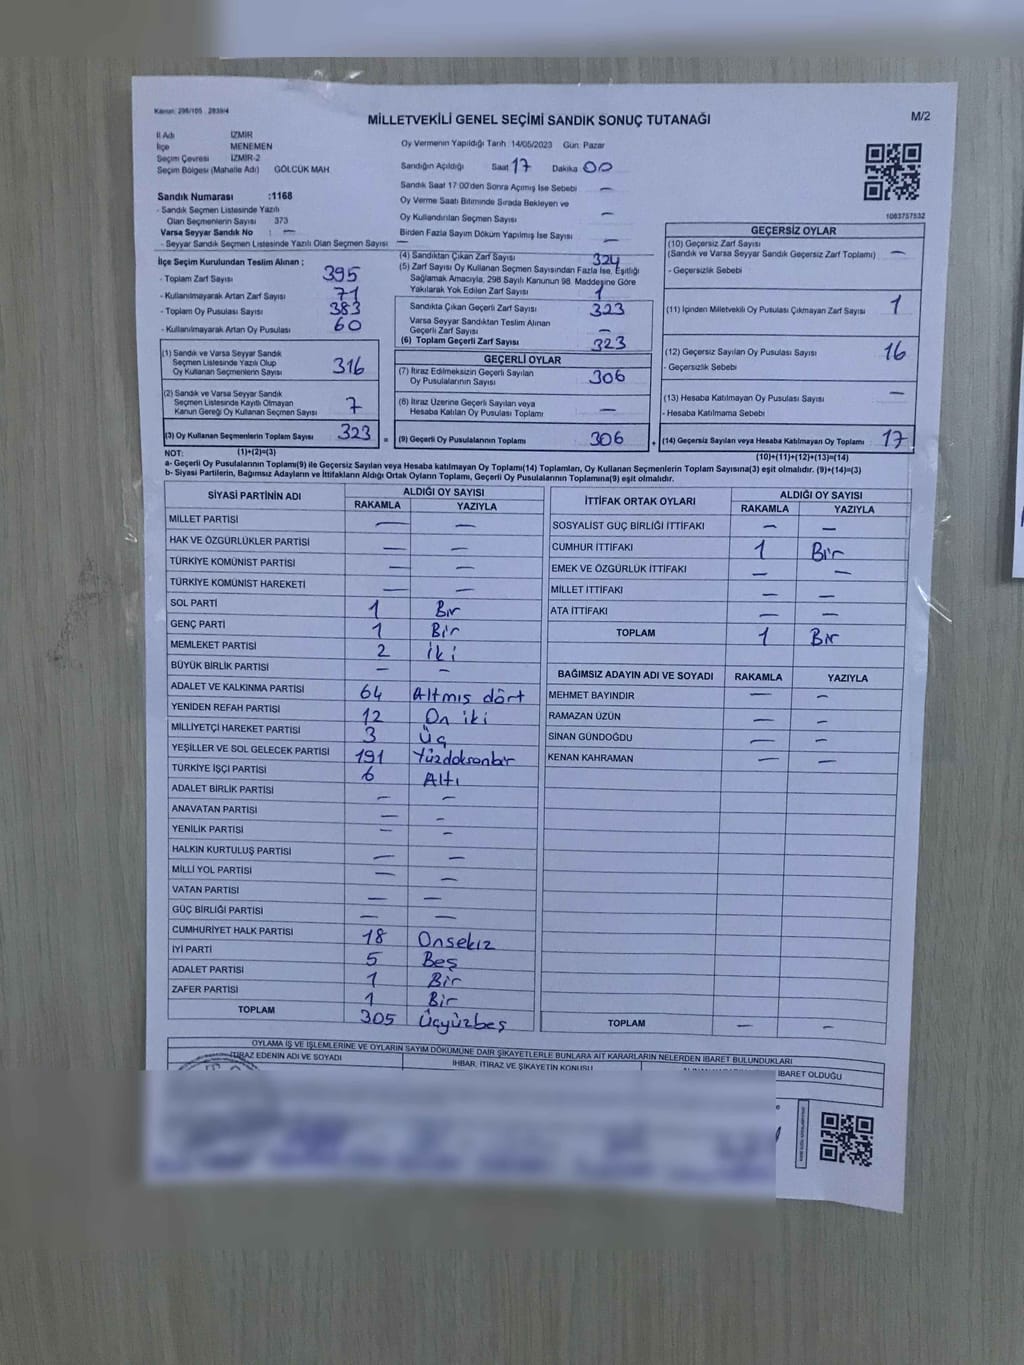 Kanun: 298/105 2839/4
MİLLETVEKİLİ GENEL SEÇİMİ SANDIK SONUÇ TUTANAĞI
M/2
İl Adı İZMİR
İlçe MENEMEN
Seçim Çevresi İZMİR-2
Seçim Bölgesi (Mahalle Adı) GÖLCÜK MAH
Sandık Numarası :1168
- Sandık Seçmen Listesinde Yazılı
Olan Seçmenlerin Sayısı 373
Varsa Seyyar Sandık No : —
- Seyyar Sandık Seçmen Listesinde Yazılı Olan Seçmen Sayısı —
Oy Vermenin Yapıldığı Tarih 14/05/2023 Gün Pazar
Sandığın Açıldığı Saat 17 Dakika 00
Sandık Saat 17:00'den Sonra Açılmış İse Sebebi —
Oy Verme Saati Bitiminde Sırada Bekleyen ve
Oy Kullandırılan Seçmen Sayısı —
Birden Fazla Sayım Döküm Yapılmış İse Sayısı —
1083757532
İlçe Seçim Kurulundan Teslim Alınan ;
- Toplam Zarf Sayısı 395
- Kullanılmayarak Artan Zarf Sayısı 71
- Toplam Oy Pusulası Sayısı 383
- Kullanılmayarak Artan Oy Pusulası 60
(1) Sandık ve Varsa Seyyar Sandık
Seçmen Listesinde Yazılı Olup
Oy Kullanan Seçmenlerin Sayısı 316
(2) Sandık ve Varsa Seyyar Sandık
Seçmen Listesinde Kayıtlı Olmayan
Kanun Gereği Oy Kullanan Seçmen Sayısı 7
(3) Oy Kullanan Seçmenlerin Toplam Sayısı 323 =
(4) Sandıktan Çıkan Zarf Sayısı 324
(5) Zarf Sayısı Oy Kullanan Seçmen Sayısından Fazla İse, Eşitliği
Sağlamak Amacıyla, 298 Sayılı Kanunun 98. Maddesine Göre
Yakılarak Yok Edilen Zarf Sayısı 1
Sandıkta Çıkan Geçerli Zarf Sayısı 323
Varsa Seyyar Sandıktan Teslim Alınan
Geçerli Zarf Sayısı —
(6) Toplam Geçerli Zarf Sayısı 323
GEÇERLİ OYLAR
(7) İtiraz Edilmeksizin Geçerli Sayılan
Oy Pusulalarının Sayısı 306
(8) İtiraz Üzerine Geçerli Sayılan veya
Hesaba Katılan Oy Pusulası Toplamı —
(9) Geçerli Oy Pusulalarının Toplamı 306 +
GEÇERSİZ OYLAR
(10) Geçersiz Zarf Sayısı
(Sandık ve Varsa Seyyar Sandık Geçersiz Zarf Toplamı) —
- Geçersizlik Sebebi
(11) İçinden Milletvekili Oy Pusulası Çıkmayan Zarf Sayısı 1
(12) Geçersiz Sayılan Oy Pusulası Sayısı 16
- Geçersizlik Sebebi
(13) Hesaba Katılmayan Oy Pusulası Sayısı —
- Hesaba Katılmama Sebebi
(14) Geçersiz Sayılan veya Hesaba Katılmayan Oy Toplamı 17
NOT: (1)+(2)=(3) (10)+(11)+(12)+(13)=(14)
a- Geçerli Oy Pusulalarının Toplamı(9) ile Geçersiz Sayılan veya Hesaba katılmayan Oy Toplamı(14) Toplamları, Oy Kullanan Seçmenlerin Toplam Sayısına(3) eşit olmalıdır. (9)+(14)=(3)
b- Siyasi Partilerin, Bağımsız Adayların ve İttifakların Aldığı Ortak Oyların Toplamı, Geçerli Oy Pusulalarının Toplamına(9) eşit olmalıdır.
SİYASİ PARTİNİN ADI ALDIĞI OY SAYISI
RAKAMLA YAZIYLA
MİLLET PARTİSİ — —
HAK VE ÖZGÜRLÜKLER PARTİSİ — —
TÜRKİYE KOMÜNİST PARTİSİ — —
TÜRKİYE KOMÜNİST HAREKETİ — —
SOL PARTİ 1 Bir
GENÇ PARTİ 1 Bir
MEMLEKET PARTİSİ 2 iki
BÜYÜK BİRLİK PARTİSİ — —
ADALET VE KALKINMA PARTİSİ 64 Altmış dört
YENİDEN REFAH PARTİSİ 12 On iki
MİLLİYETÇİ HAREKET PARTİSİ 3 Üç
YEŞİLLER VE SOL GELECEK PARTİSİ 191 Yüzdoksanbir
TÜRKİYE İŞÇİ PARTİSİ 6 Altı
ADALET BİRLİK PARTİSİ — —
ANAVATAN PARTİSİ — —
YENİLİK PARTİSİ — —
HALKIN KURTULUŞ PARTİSİ — —
MİLLİ YOL PARTİSİ — —
VATAN PARTİSİ — —
GÜÇ BİRLİĞİ PARTİSİ — —
CUMHURİYET HALK PARTİSİ 18 Onsekiz
İYİ PARTİ 5 Beş
ADALET PARTİSİ 1 Bir
ZAFER PARTİSİ 1 Bir
TOPLAM 305 Üçyüzbeş
İTTİFAK ORTAK OYLARI ALDIĞI OY SAYISI
RAKAMLA YAZIYLA
SOSYALİST GÜÇ BİRLİĞİ İTTİFAKI — —
CUMHUR İTTİFAKI 1 Bir
EMEK VE ÖZGÜRLÜK İTTİFAKI — —
MİLLET İTTİFAKI — —
ATA İTTİFAKI — —
TOPLAM 1 Bir
BAĞIMSIZ ADAYIN ADI VE SOYADI RAKAMLA YAZIYLA
MEHMET BAYINDIR — —
RAMAZAN ÜZÜN — —
SİNAN GÜNDOĞDU — —
KENAN KAHRAMAN — —
TOPLAM — —
OYLAMA İŞ VE İŞLEMLERİNE VE OYLARIN SAYIM DÖKÜMÜNE DAİR ŞİKAYETLERLE BUNLARA AİT KARARLARIN NELERDEN İBARET BULUNDUKLARI
İTİRAZ EDENİN ADI VE SOYADI
İHBAR, İTİRAZ VE ŞİKAYETİN KONUSU
İBARET OLDUĞU